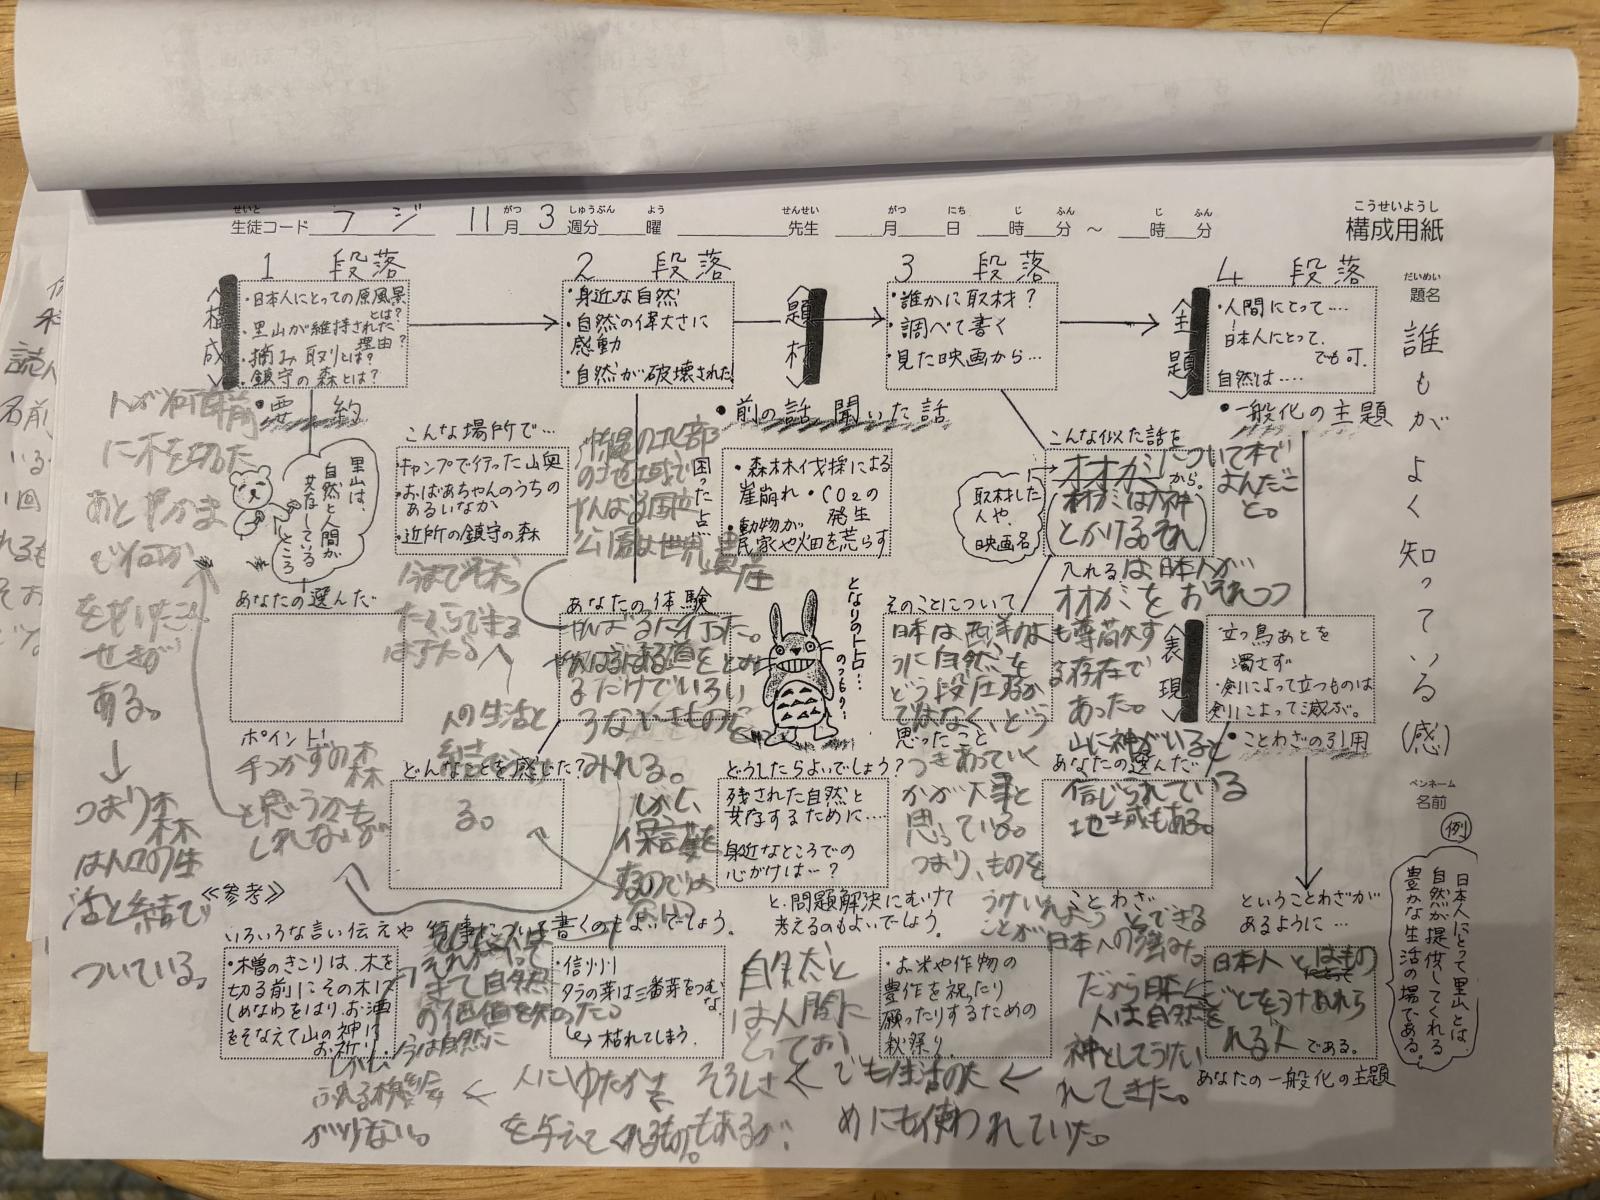 構成用紙
こうせいようし
生徒コード フジ 11月3週分 曜 先生 月 日 時 分 ～ 時 分
せいと がつ しゅうぶん よう せんせい がつ にち じ ふん じ ふん
だいめい
題名
誰もがよく知っている(感)
ペンネーム
名前
1 段落
〈構成〉
・日本人にとっての原風景とは？
・里山が維持された理由？
・摘み取りとは？
・鎮守の森とは？
・要約
里山は、
自然と人間が
共存している
ところ
あなたの選んだ
ポイント！
2 段落
・身近な自然
・自然の偉大さに
感動
・自然が破壊された！
こんな場所で…
・キャンプで行った山奥
・おばあちゃんのうちの
あるいなか
・近所の鎮守の森
あなたの体験
どんなことを感じた？
〈題材〉
3 段落
・誰かに取材？
・調べて書く
・見た映画から…
・前の話 聞いた話
困った点
・森林伐採による
崖崩れ・CO2の
発生
・動物が
民家や畑を荒らす
となりのトトロ…
のつもり…
どうしたらよいでしょう？
残された自然と
共存するために…
身近なところでの
心がけは…？
と、問題解決にむけて
考えるのもよいでしょう。
こんな似た話を
取材した
人や、
映画名
から。
入れる
そのことについて
思ったこと
あなたの選んだ
ことわざ
〈主題〉
4 段落
・人間にとって…
日本人にとって、
でも可.
自然は…
・一般化の主題
〈表現〉
立つ鳥あとを
濁さず
・剣によって立つものは
剣によって滅ぶ。
・ことわざの引用
ということわざが
あるように…
日本人とはもの
ごとをうけ入れら
れる人 である。
あなたの一般化の主題
例
日本人にとって里山とは、
自然が提供してくれる
豊かな生活の場である。
≪参考≫
いろいろな言い伝えや行事について書くのもよいでしょう。
・木曽のきこりは、木を
切る前にその木に
しめなわをはり、お酒
をそなえて山の神に
お祈り
・信州
タラの芽は三番芽をつむな
↳枯れてしまう.
・お米や作物の
豊作を祝ったり
願ったりするための
秋祭り
に木を切った
あとやかま
ある。
↓
つまり森
は人々の生
活と結び
ついている。
手つかずの森
と思うかも
しれないが
人の生活と
る。
沖縄の北部
の地域で
やんばる国立
公園は世界遺産
やんばるに行った。
やんばるはある道をとお
るだけでいろい
ろないきものが
みれる。
しかし、
保護を
きて自然
の価値を知った。
しかし、今は自然に
ふれる機会
が少ない。
オオカミについて本で
よんだこ
と。
オオカミは大神
とかける。それ
は日本人が
オオカミをおそれつつ
も尊敬す
る存在で
あった。
山に神がいると
信じられている
地域もある。
日本は西洋のよ
うに自然を
どう段圧するか
ではなく、どう
つきあっていく
かが大事と
思っている。
つまり、ものを
うけいれようとできる
ことが日本人の強み。
だから日本
人は自然を
神としてうたい
れてきた。
自然と
は人間に
とってお
そろしさ
でも生活のた
めにも使われていた。
人にゆたかさ
を与えてくれるものもあるが、